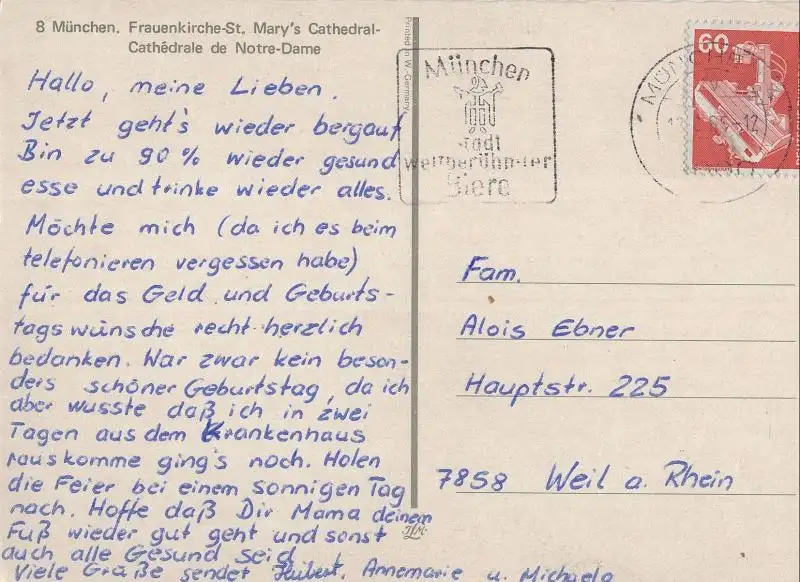 8 München. Frauenkirche-St. Mary's Cathedral-
Cathêdrale de Notre-Dame
Printed in W.-Germany
Hallo, meine Lieben.
Jetzt geht's wieder bergauf
Bin zu 90% wieder gesund
esse und trinke wieder alles.
Möchte mich (da ich es beim
telefonieren vergessen habe)
für das Geld und Geburts-
tagswünsche recht herzlich
bedanken. War zwar kein beson-
ders schöner Geburtstag, da ich
aber wusste daß ich in zwei
Tagen aus dem Krankenhaus
rauskomme ging's noch. Holen
die Feier bei einem sonnigen Tag
nach. Hoffe daß Dir Mama deinem
Fuß wieder gut geht und sonst
auch alle Gesund seid.
Viele Grüße sendet Hubert, Annemarie u. Michaela
München
Stadt
weltberühmter
Biere
MÜNCHE
-12
60
Fam.
Alois Ebner
Hauptstr. 225
7858 Weil a. Rhein